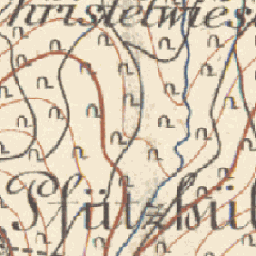 hristelwies
Pfützbül